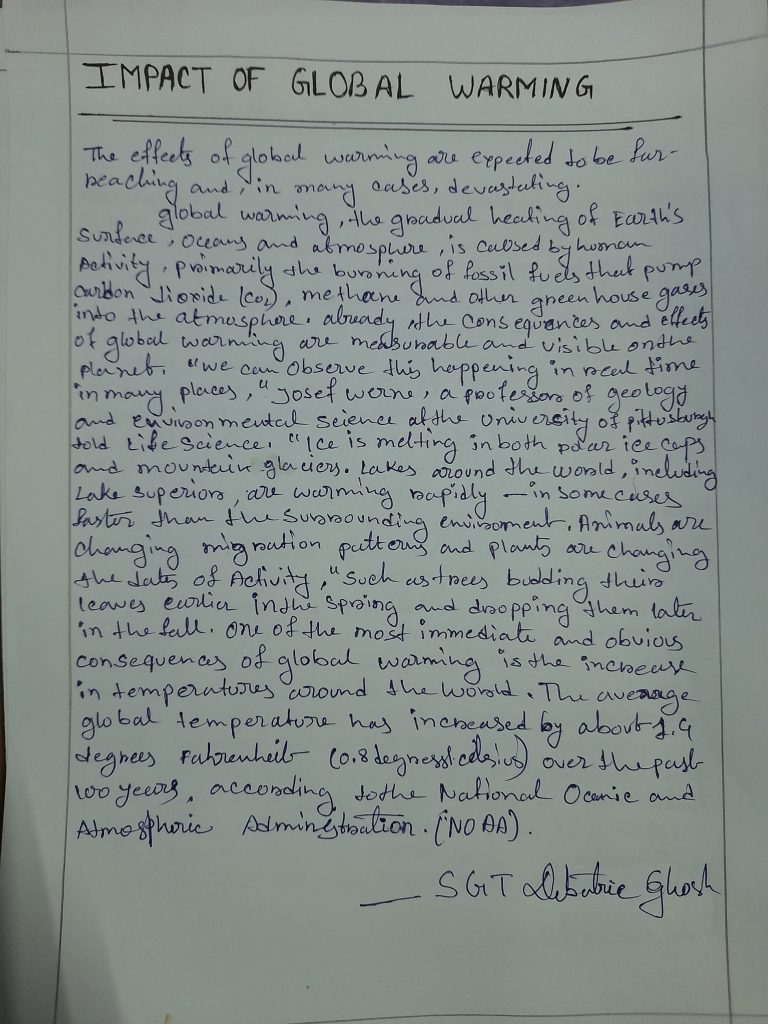 IMPACT OF GLOBAL WARMING
The effects of global warming are expected to be far-
reaching and, in many cases, devastating.
global warming, the gradual heating of Earth's
Surface, Oceans and atmosphere, is caused by human
Activity, primarily the burning of fossil fuels that pump
carbon dioxide (Co2), methane and other greenhouse gases
into the atmosphere. already, the consequences and effects
of global warming are measurable and visible on the
planet. "we can Observe this happening in real time
in many places," Josef werne, a professor of geology
and environmental science at the University of pittusburgh
told Life Science. "Ice is melting in both polar ice caps
and mountain glaciers. Lakes around the world, including
Lake superior, are warming rapidly — in some cases
faster than the Surrounding enviroment. Animals are
changing migration patterns and plants are changing
the dats of Activity," Such as trees budding their
leaves earlier in the spring and dropping them later
in the fall. One of the most immediate and obvious
consequences of global warming is the increase
in temperatures around the world. The average
global temperature has increased by about 1.4
degrees Fahrenheit (0.8 degress celsius) over the past
100 years, according to the National Oceanic and
Atmosphoric Administration. (NOAA).
— SGT Debatrie Ghosh